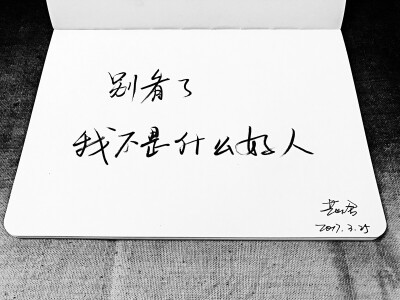 别看了
我不是什么好人
2017.3.25